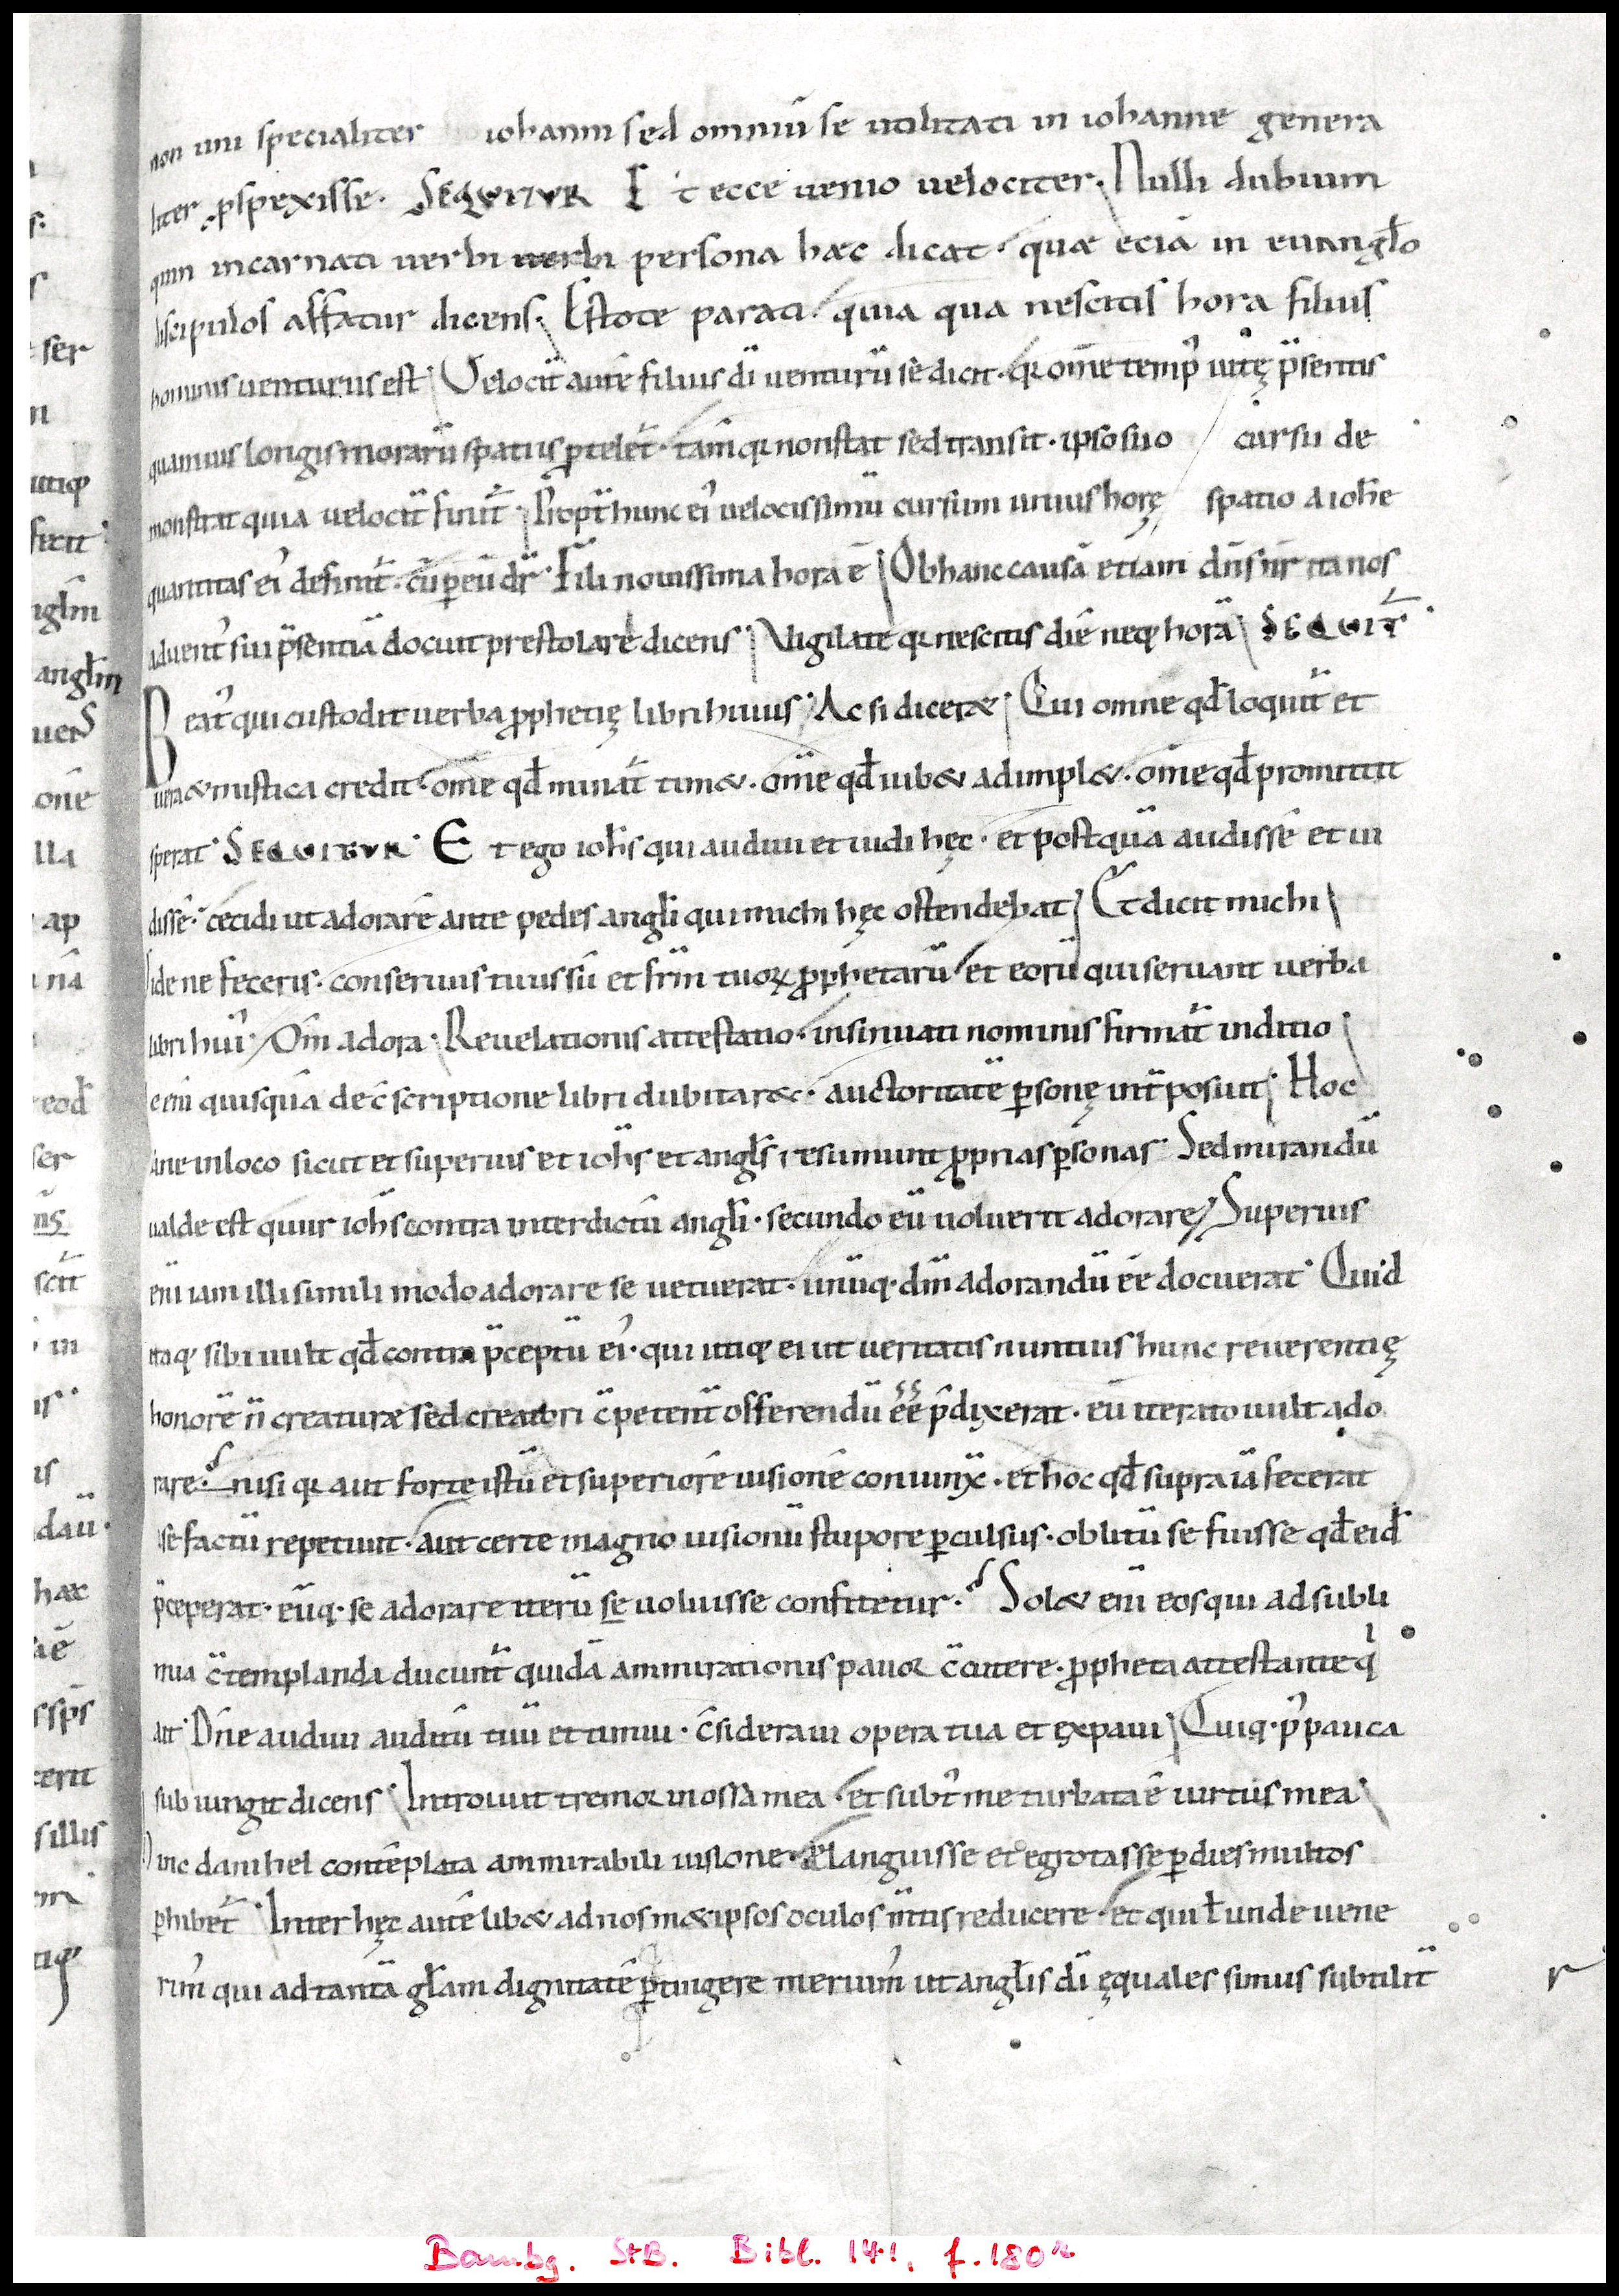 non uni specialiter iohanni sed omniū se utilitati in iohanne genera
liter pspexisse. SEQVITVR Et ecce uenio uelociter. Nulli dubium
quin incarnati uerbi uerbi persona hæc dicat. quæ eciā in euanglo
discipulos affatur dicens. Estote parati. quia qua nescitis hora filius
hominis uenturus est. Velocit̄ autē filius dī uenturū se dicit. qr om̄e temp' uitę p̄sentis
quamuis longis morarū spatiis ꝓtelet̄. tam̄ qr non stat sed transit. ipso suo cursu de
monstrat quia uelocit̄ finit̄. Propt̄ hunc ei' uelocissimū cursum unius horę spatio a iohe
quantitas ei' definit̄. cū ꝑ eū dr̄. Filii nouissima hora ē. Ob hanc causā etiam dn̄s nr̄ ita nos
aduent' sui p̄sentiā docuit prestolare dicens. Vigilate qr nescitis diē neq; horā. SEQVIT̄
Beat' qui custodit uerba ꝓphetię libri huius. Ac si diceræ. Qui omne qd̄ loquit̄ et
uera & mistica credit. om̄e qd̄ minat̄ tim&. om̄e qd̄ iub& adimpl&. om̄e qd̄ promittit
sperat. SEQVITVR Et ego ioh̄s qui audiui et uidi hęc. et postquā audissē et ui
dissē. cecidi ut adorarē ante pedes angli qui michi hęc ostendebat. Et dicit michi
Vide ne feceris. conseruus tuus sū et frm̄ tuoꝝ ꝓphetarū et eorū qui seruant uerba
libri hui'. Dm̄ adora. Reuelationis attestatio. insinuati nominis firmat̄ inditio.
Ne eni quisquā de c̄scriptione libri dubitar&. auctoritatē ꝑsonę int̄posuit. Hoc
sane in loco sicut et superius et ioh̄s et angls resumunt ꝓprias ꝑsonas. Sed mirandū
ualde est quur ioh̄s contra interdictū angli. secundo eū uoluerit adorare. Superius
eni iam illi simili modo adorare se uetuerat. unūq. dm̄ adorandū eē docuerat. Quid
itaq; sibi uult qd̄ contra p̄ceptū ei'. qui utiq; ei ut ueritatis nuntius hunc reuerentię
honorē n̄ creaturæ sed creatori c̄petent̄ offerendū eē p̄dixerat. eū iterato uult ado
rare. nisi qr aut forte istū et superiorē uisionē coniunx. et hoc qd̄ supra iā fecerat
se factū repetiuit. aut certe magno uisionū stupore ꝑculsus. oblitū se fuisse qd̄ eid̄
p̄ceperat. eūq. se adorare iterū se uoluisse confitetur. Sol& eni eos qui ad subli
mia c̄templanda ducunt̄ quidā ammirationis pauor c̄cutere. ꝓpheta attestante q
ait. Dn̄e audiui auditū tuū et timui. c̄sideraui opera tua et expaui. Quiq. p' pauca
subiungit dicens. Introiuit tremor in ossa mea. et subt' me turbata ē uirtus mea
Hinc danihel contēplata ammirabili uisione. elanguisse et egrotasse ꝑ dies multos
ꝑhibet̄. Inter hęc autē lib& ad nos m&ipsos oculos mtis reducere. et qui ł unde uene
rim' qui ad tantā glam dignitatē ꝑtingere meruim' ut anglis dī ęquales simus subtilit̄
r
ser
n
utiq;
nglm
anglm
onē
lla
ap
nā
eod̄
ser
in
us
hæc
cerit
sillis
Bambg. StB. Bibl. 141, f. 180r